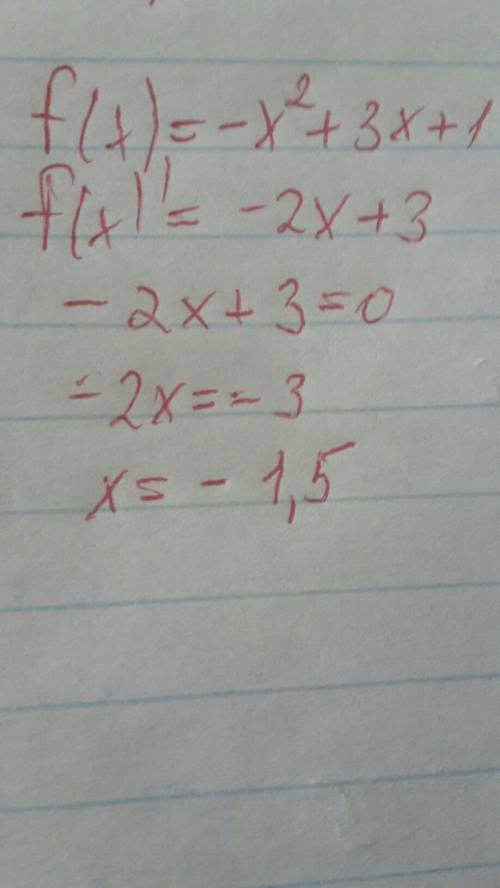 f(x)=-x²+3x+1
f(x)'= -2x+3
-2x+3=0
-2x=-3
x= -1,5